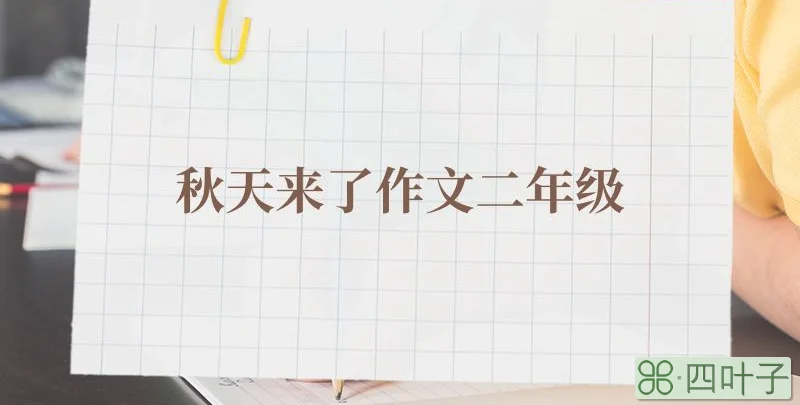 秋天来了作文二年级
四叶子